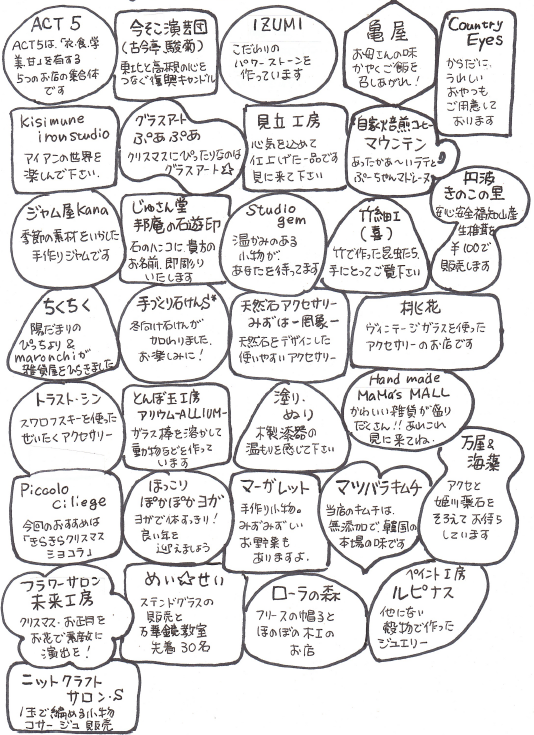 ACT 5
ACT5は、「衣・食・学
美・甘」を有する
5つのお店の集合体
です
今そこ演芸団
(古今亭駿菊)
東北と高槻の心を
つなぐ復興キャンドル
IZUMI
こだわりの
パワーストーンを
作っています
亀屋
お母さんの味
かやくご飯を
召しあがれ!
Country
Eyes
からだに、
うれしい
おやつも
ご用意して
おります
Kisimune
iron studio
アイアンの世界を
楽しんで下さい。
グラスアート
ぷあぷあ
クリスマスにぴったりなのは
グラスアート☆
見立工房
心気を込めて
仕上げた一品です
見に来て下さい
自家焙煎コーヒー
マウンテン
あったかあ〜いラテと
ぷーちゃんマドレーヌ
丹波
きのこの里
安心安全福知山産
生椎茸を
¥100で
販売します
ジャム屋kana
季節の素材をいかした
手作りジャムです
じゅさん堂
邦庵の石遊印
石のハンコに貴方の
お名前、即彫り
いたします
Studio
gem
温かみのある
小物が
あなたを待ってます
竹細工
(喜)
竹で作った昆虫たち、
手にとってご覧下さい
ちくちく
陽だまりの
ぴっちょり&
maronchiが
雑貨屋をひらきました
手づくり石けんS*
冬向け石けんが
加わりました。
お楽しみに!
天然石アクセサリー
みずはー罔象ー
天然石をデザインした
使いやすいアクセサリー
桃花
ヴィンテージガラスを使った
アクセサリーのお店です
トラスト・ミン
スワロフスキーを使った
ぜいたくアクセサリー
とんぼ玉工房
アリウム-ALLIUM-
ガラス棒を溶かして
動物などを作って
います
塗り、
ぬり
木製漆器の
温もりを感じて下さい
Hand made
MaMa's MALL
かわいい雑貨が盛り
だくさん!!あいこれ
見に来てね。
万屋&
海薬
アクセと
姫川薬石を
そろえてお待ち
しています
Piccolo
ciliege
今回のおすすめは
「きらきらクリスマス
ショコラ」
ほっこり
ぽかぽかヨガ
ヨガで体すっきり!
良い年を
迎えましょう
マーガレット
手作り小物。
みずみずしい
お野菜も
ありますよ。
マツバラキムチ
当店のキムチは、
無添加で、韓国の
本場の味です
フラワーサロン
未来工房
クリスマス・お正月を
お花で素敵に
演出を!
めい☆せい
ステンドグラスの
販売と
万華鏡教室
先着30名
ローラの森
フリースの帽子と
ほのぼの木工の
お店
ペイント工房
ルピナス
他にない
穀物で作った
ジュエリー
ニットクラフト
サロン・S
1玉で編める小物
コサージュ販売